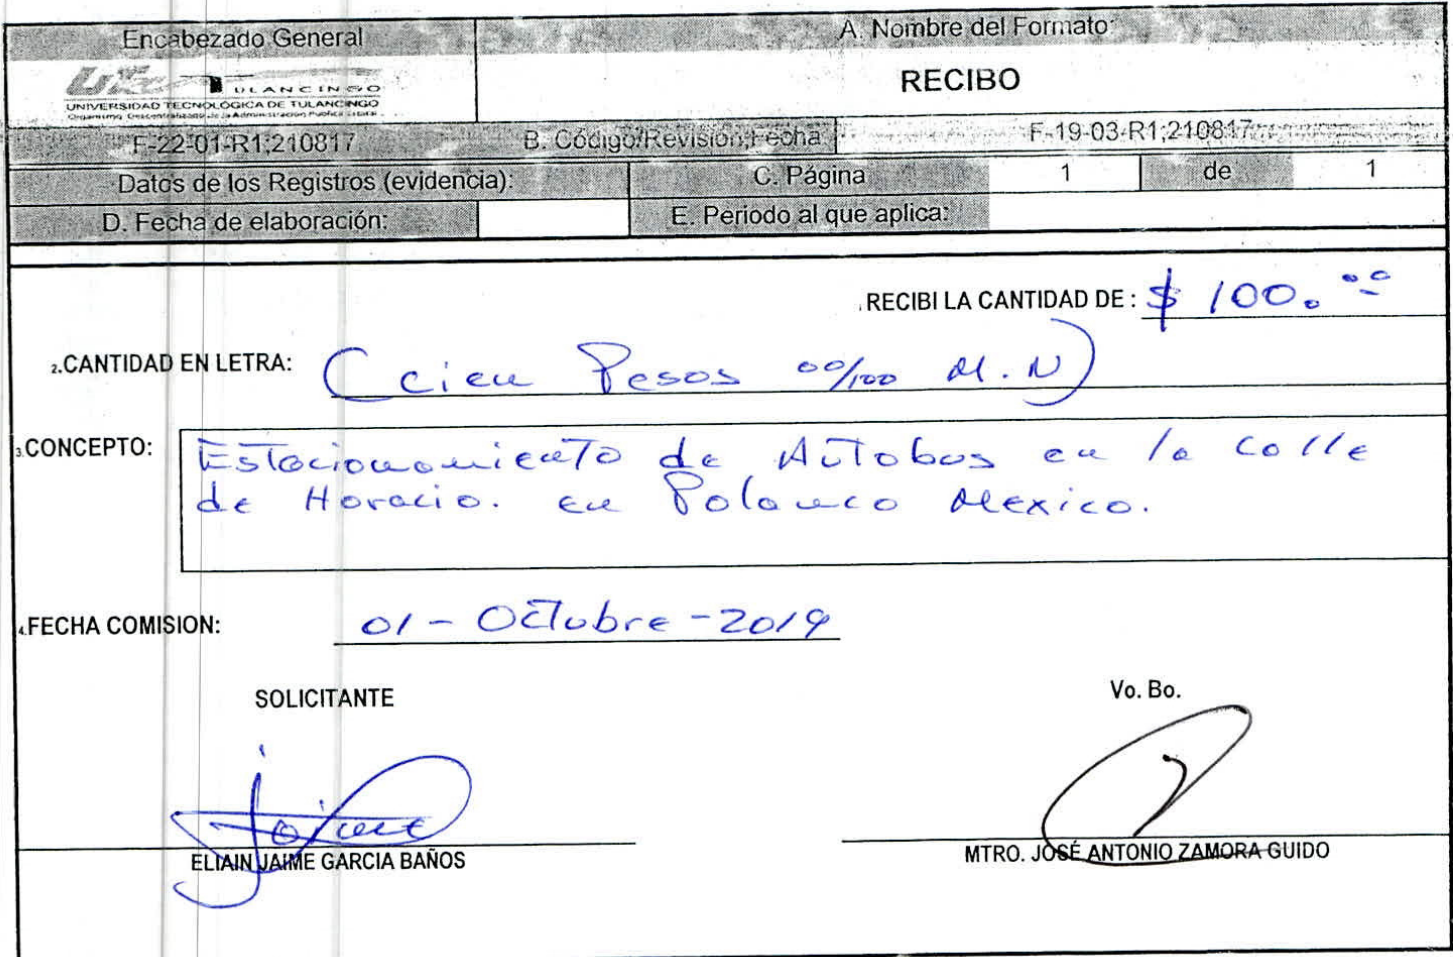 Encabezado General
A. Nombre del Formato:
ULANCINGO
UNIVERSIDAD TECNOLÓGICA DE TULANCINGO
Organismo Descentralizado de la Administración Pública Estatal
RECIBO
F-22-01-R1;210817
B. Código/Revisión;Fecha
F-19-03-R1;210817
Datos de los Registros (evidencia):
C. Página
1
de
1
D. Fecha de elaboración:
E. Periodo al que aplica:
RECIBI LA CANTIDAD DE : $ 100.00
2.CANTIDAD EN LETRA: (cien Pesos 00/100 M.N)
3.CONCEPTO: Estacionamiento de Autobus en la colle
de Horacio. en Polanco Mexico.
4.FECHA COMISION: 01-Octubre-2019
SOLICITANTE
Vo. Bo.
Jaime
ELIAIN JAIME GARCIA BAÑOS
MTRO. JOSÉ ANTONIO ZAMORA GUIDO